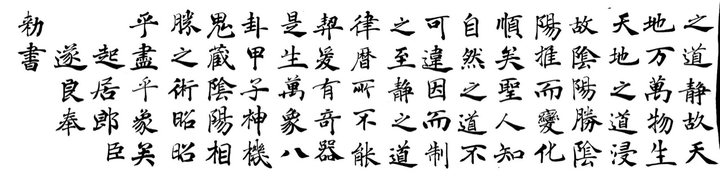 之道静故天
地万萬物生
天地之道浸
故陰陽勝陰
陽推而變化
順矣聖人知
自然之道不
可違因而制
之至静之道
律曆所不能
契爰有奇器
是生萬象八
卦甲子神機
鬼藏陰陽相
勝之術昭昭
乎盡乎象矣
起居郎臣
遂良奉
勑書